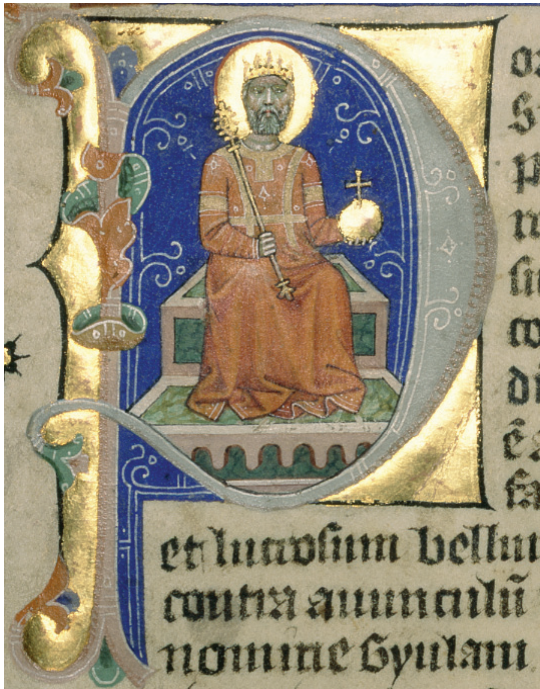 P or
co
di
fa
et lucrosum bellu
contra auunculū
nomine Gyulam